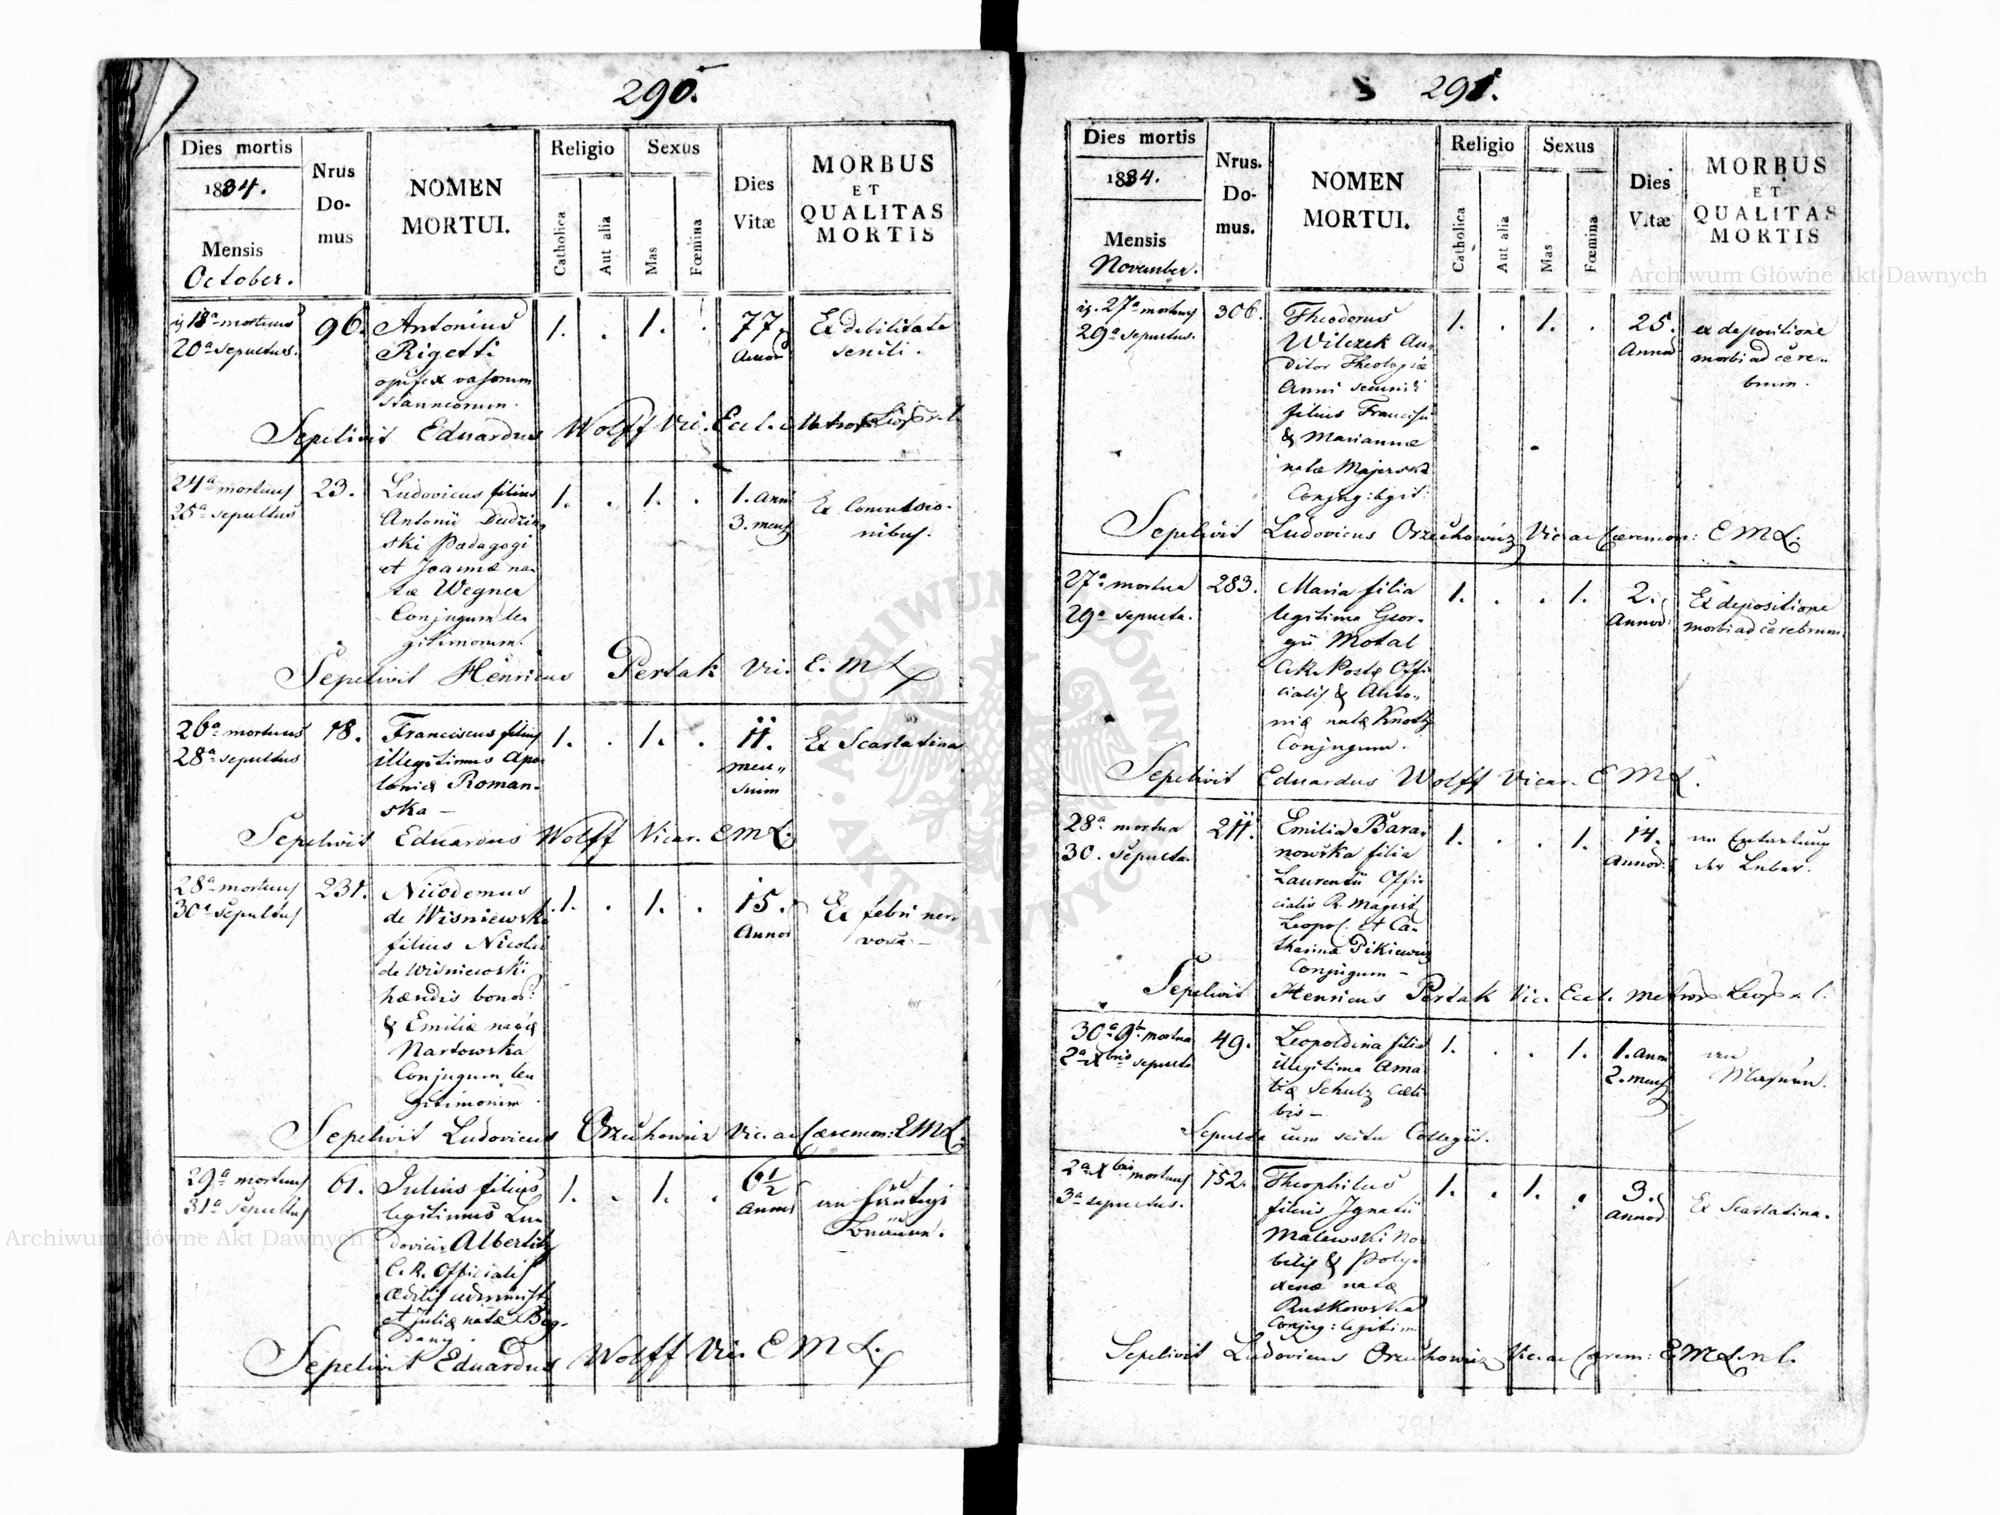 290.
Dies mortis
1834.
Mensis
October.
Nrus
Do-
mus
NOMEN
MORTUI.
Religio
Catholica
Aut alia
Sexus
Mas
Fœmina
Dies
Vitæ
MORBUS
ET
QUALITAS
MORTIS
18ª mortuus
20ª sepultus.
96.
Antonius
Rigetti
opifex vasorum
stanneorum.
1. . 1. .
77.
Annor
Ex debilitate
senili.
Sepelivit Eduardus Wolff Vic. Eccl.
24ª mortuus
25ª sepultus
23.
Ludovicus filius
Antonii Dudzin
ski Pædagogi
et Joannæ na
tæ Wegner
Conjugum le
gitimorum.
1. . 1. .
1. Anni
3. mens
Ex Convulsio-
nibus.
Sepelivit Henricus Pertak Vic. E. M L.
26ª mortuus
28ª sepultus
18.
Franciscus filius
illegitimus Apo
loniæ Roman-
ska —
1. . 1. .
11.
men„
sium
Ex Scarlatina
Sepelivit Eduardus Wolff Vicar. E M L.
28ª mortuus
30ª sepultus
231.
Nicodemus
de Wisniewski
filius Nicolai
de Wisniewski
hæredis bonor:
& Emiliæ natæ
Nartowska
Conjugum le
gitimorum.
1. . 1. .
15.
Annor
Ex febri ner-
vosa —
Sepelivit Ludovicus Orzechowicz Vic. ac Cæremon: E M L.
29ª mortuus
31ª sepultus
61.
Julius filius
legitimus Lu
dovici Albertitz
C. R. Officialis
ædilis administ
et Juliæ natæ Bog-
dany.
1. . 1. .
6½
Annor
an häutige
Bräune.
Sepelivit Eduardus Wolff Vic. E M L.
291.
Dies mortis
1834.
Mensis
November.
Nrus.
Do-
mus.
NOMEN
MORTUI.
Religio
Catholica
Aut alia
Sexus
Mas
Fœmina
Dies
Vitæ
MORBUS
ET
QUALITAS
MORTIS
27ª mortuus
29ª sepultus.
306.
Theodorus
Wilczek Au„
ditor Theologiæ
Anni secundi
filius Francisci
& Mariannæ
natæ Majerska
Conjug: legit:
1. . 1. .
25.
Annor
ex depositione
morbi ad cere„
brum.
Sepelivit Ludovicus Orzechowicz Vic. ac Cæremon: E M L.
27ª mortua
29ª sepulta.
283.
Maria filia
legitima Geor-
gii Motal
C. R. Postæ Offi
cialis & Anto„
niæ natæ Knotz
Conjugum.
1. . . 1.
2.
Annor:
Ex depositione
morbi ad cerebrum
Sepelivit Eduardus Wolff Vicar. E M L.
28ª mortua
30. sepulta.
211.
Emilia Bara-
nowska filia
Laurentii Offi
cialis R. Magist
Leopol. et Ca-
tharina Pikiewicz
Conjugum —
1. . . 1.
14.
Annor:
an Entartung
der Leber.
Sepelivit Henricus Pertak Vic. Eccl. Metrop. Leop. r. l.
30ª 9b. mortua
2ª Xbris sepulta
49.
Leopoldina filia
illegitima Ama
liæ Schulz cæli
bis —
1. . . 1.
1. Anni
2. mens
an
Masern.
Sepulta cum scitu Collegii.
2ª Xbris mortuus
3ª sepultus.
152.
Theophilus
filius Ignatii
Malewski No
bilis & Poly-
xenæ natæ
Rutkowska
Conjug: legitim
1. . 1. .
3.
Annor
Ex Scarlatina.
Sepelivit Ludovicus Orzechowicz Vic. ac Cærem: E M L. r. l.
Archiwum Główne Akt Dawnych
Archiwum Główne Akt Dawnych
ARCHIWUM GŁÓWNE · AKT DAWNYCH ·